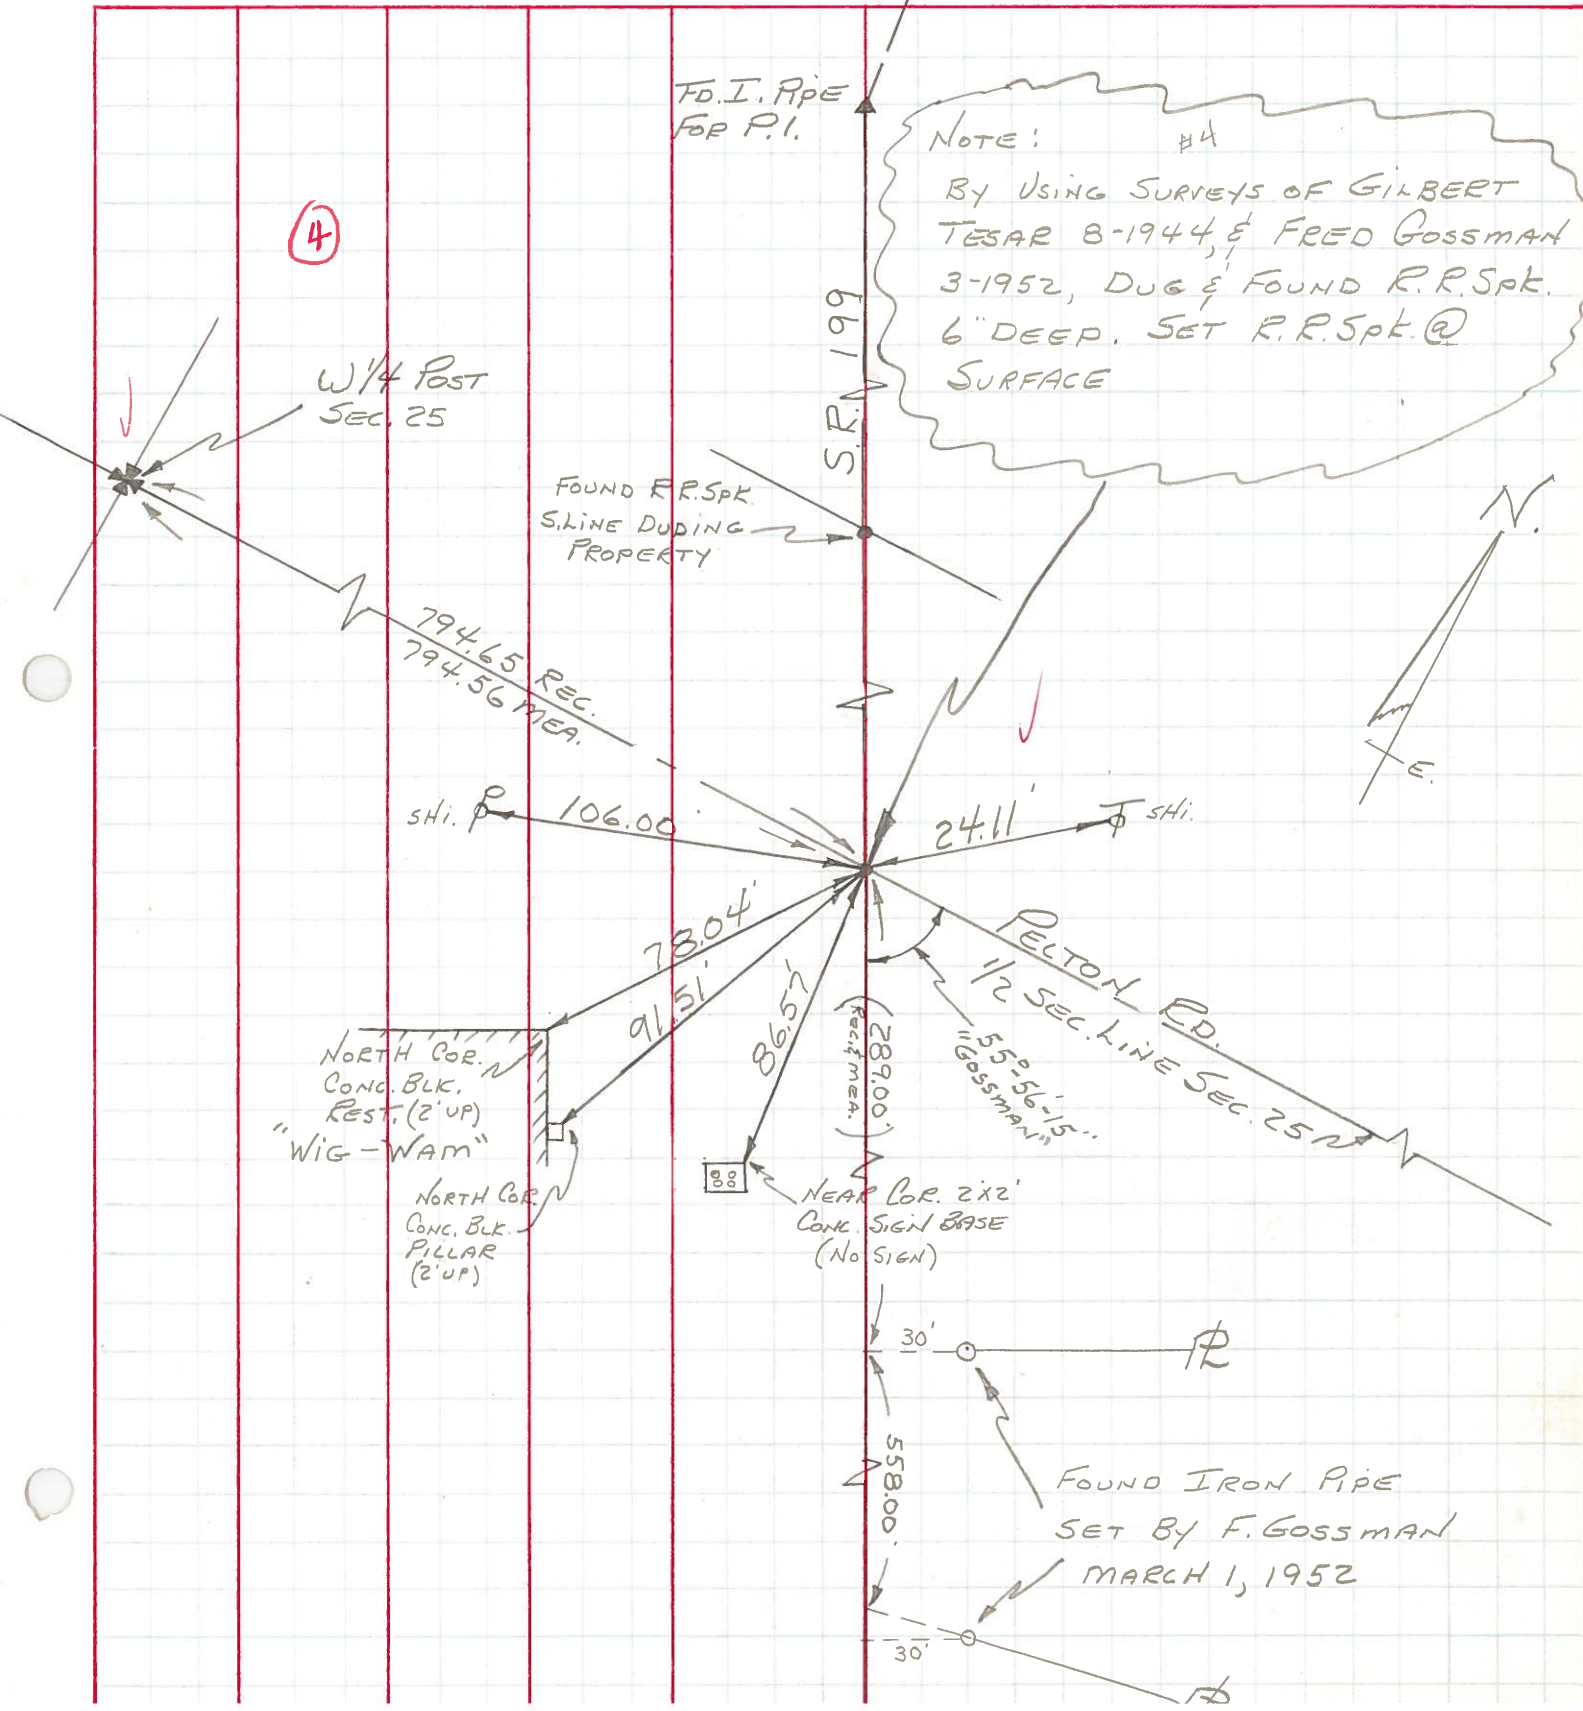 FD. I. PIPE
FOR P.I.
NOTE: #4
BY USING SURVEYS OF GILBERT
TESAR 8-1944, & FRED GOSSMAN
3-1952, DUG & FOUND R.R. SPK.
6" DEEP. SET R.R. SPK. @
SURFACE
4
S.R. 199
W 1/4 POST
SEC. 25
FOUND R.R. SPK.
S. LINE DUDING
PROPERTY
N.
E.
794.65 REC.
794.56 MEA.
SHI.
106.00'
24.11'
SHI.
78.04'
91.51'
86.57'
(289.00')
(REC. & MEA.)
55°-56'-15"
"GOSSMAN"
PELTON RD.
1/2 SEC. LINE SEC. 25
NORTH COR.
CONC. BLK.
REST. (2' UP)
"WIG-WAM"
NORTH COR.
CONC. BLK.
PILLAR
(2' UP)
NEAR COR. 2'X2'
CONC. SIGN BASE
(NO SIGN)
30'
PL
558.00'
FOUND IRON PIPE
SET BY F. GOSSMAN
MARCH 1, 1952
30'
PL